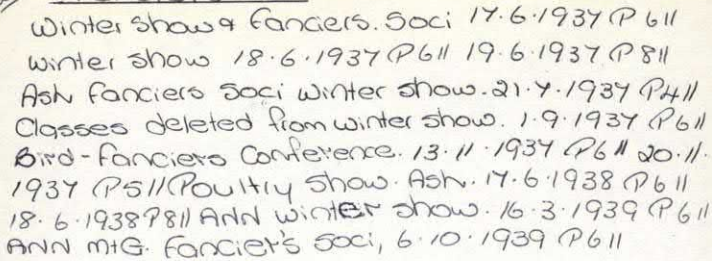 Winter Show & Fanciers. Soci 17.6.1937 P611
Winter Show 18.6.1937 P611 19.6.1937 P811
Ash Fanciers Soci Winter Show. 21.7.1937 P411
Classes deleted from winter show. 1.9.1937 P611
Bird-Fanciers Conference. 13.11.1937 P611 20.11.
1937 P511 Poultry Show. Ash. 17.6.1938 P611
18.6.1938 P811 ANN Winter Show. 16.3.1939 P611
ANN MtG. Fancier's Soci, 6.10.1939 P611